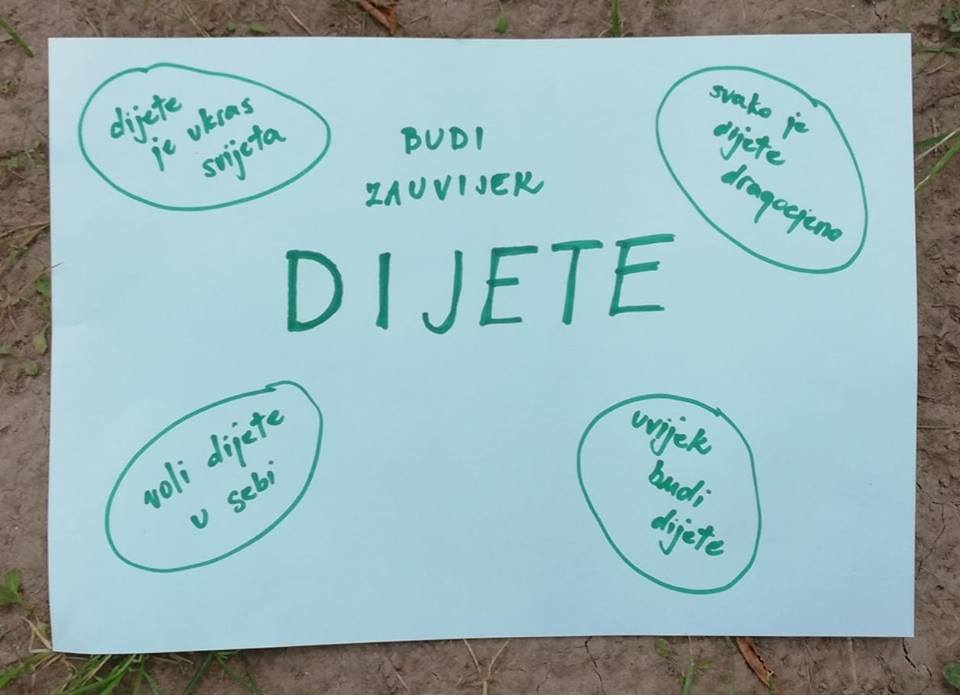 dijete
je ukras
svijeta
BUDI
ZAUVIJEK
DIJETE
svako je
dijete
dragocjeno
voli dijete
u sebi
uvijek
budi
dijete